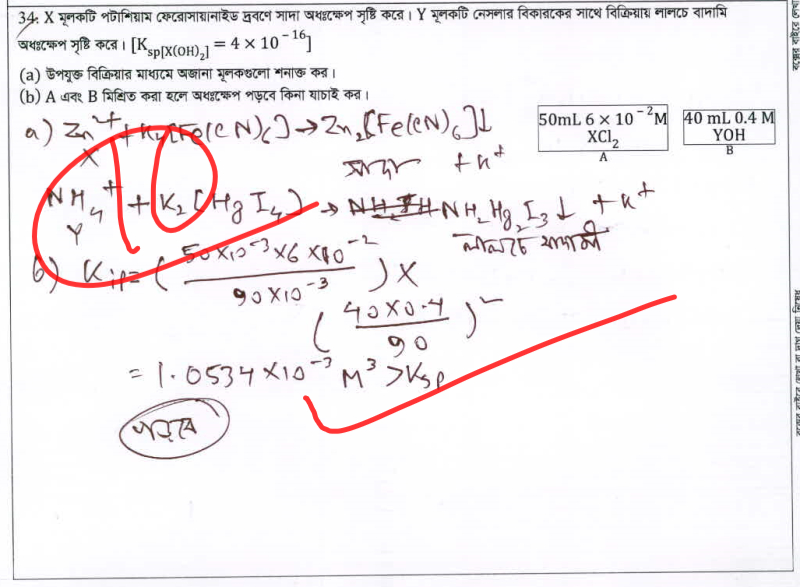 34. X মূলকটি পটাশিয়াম ফেরোসায়ানাইড দ্রবণে সাদা অধঃক্ষেপ সৃষ্টি করে। Y মূলকটি নেসলার বিকারকের সাথে বিক্রিয়ায় লালচে বাদামি
অধঃক্ষেপ সৃষ্টি করে। [K_sp[X(OH)₂] = 4 × 10⁻¹⁶]
(a) উপযুক্ত বিক্রিয়ার মাধ্যমে অজানা মূলকগুলো শনাক্ত কর।
(b) A এবং B মিশ্রিত করা হলে অধঃক্ষেপ পড়বে কিনা যাচাই কর।
50mL 6 × 10⁻²M
XCl₂
A
40 mL 0.4 M
YOH
B
a) Zn²⁺ + K₄[Fe(CN)₆] → Zn₂[Fe(CN)₆]↓
X
সাদা + K⁺
10
NH₄⁺ + K₂[HgI₄] → NH₂Hg₂I₃↓ + K⁺
Y
লালচে বাদামী
b) Kip = (50×10⁻³×6×10⁻²/90×10⁻³) ×
(40×0.4/90)²
= 1.0534×10⁻³ M³ > Ksp
পড়বে